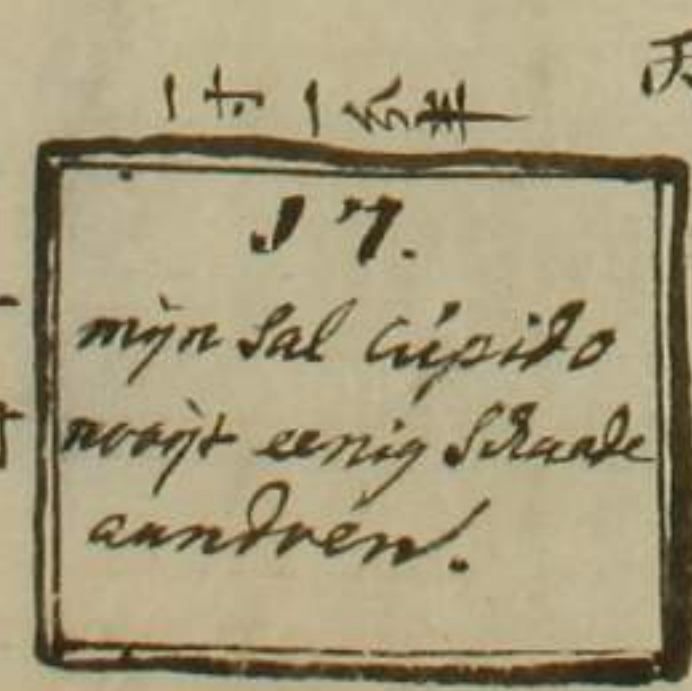 一寸一分半
17.
mijn sal cúpido
nooÿt eenig schaade
aandoen.